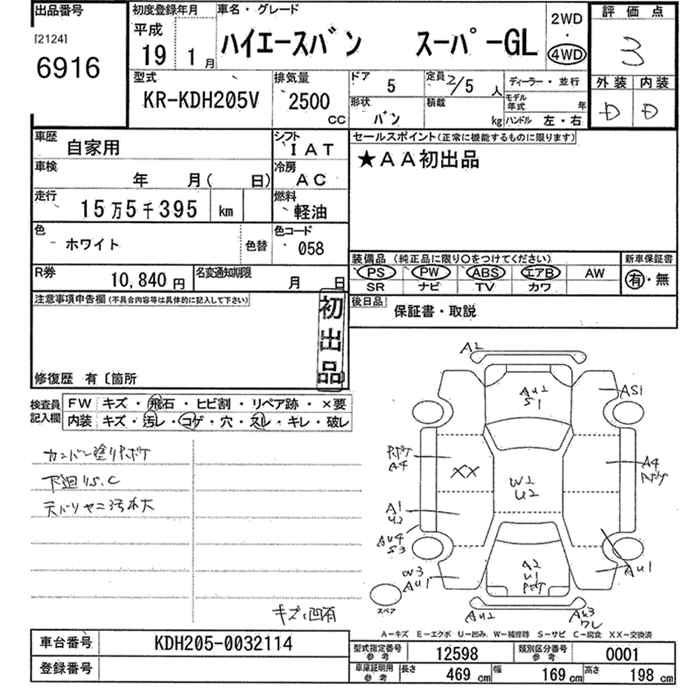 出品番号
[2124]
6916
初度登録年月
平成
19 1月
車名・グレード
ハイエースバン スーパーGL
2WD
・
4WD
評価点
3
外装 内装
D D
型式
KR-KDH205V
排気量
2500
CC
ドア 5
定員 2/5 人
形状 バン
積載 kg
ディーラー・並行
モデル年式 年
ハンドル 左・右
車歴 自家用
シフト IAT
車検 年 月( 日)
冷房 AC
走行 15万5千395 km
燃料 軽油
色 ホワイト 色替
色コード 058
R券 10,840 円
名変通知期限 月 日
セールスポイント(正常に機能するものに限ります)
★AA初出品
装備品 (純正品に限り〇をつけてください)
PS PW ABS エアB AW
SR ナビ TV カワ
新車保証書
有・無
後日品 保証書・取説
注意事項申告欄(不具合内容等は具体的に記入して下さい)
初出品
修復歴 有〔箇所
検査員記入欄
FW キズ・飛石・ヒビ割・リペア跡・×要
内装 キズ・汚レ・コゲ・穴・スレ・キレ・破レ
カンバン塗りボケ
下廻りS.C
天バリヤニ汚れ大
キズ凹有
A2
AU2
S1
AS1
A4
XX
W2
U2
A4
A1
U2
AU4
S3
W3
AU1
A2
U1
AU1
スペア
AU2
AU3
ワレ
A-キズ E-エクボ U-凹み W-補修跡 S-サビ C-腐食 XX-交換済
車台番号 KDH205-0032114
登録番号
型式指定番号 参考 12598
類別区分番号 参考 0001
車庫証明用 参考 長さ 469 cm 幅 169 cm 高さ 198 cm